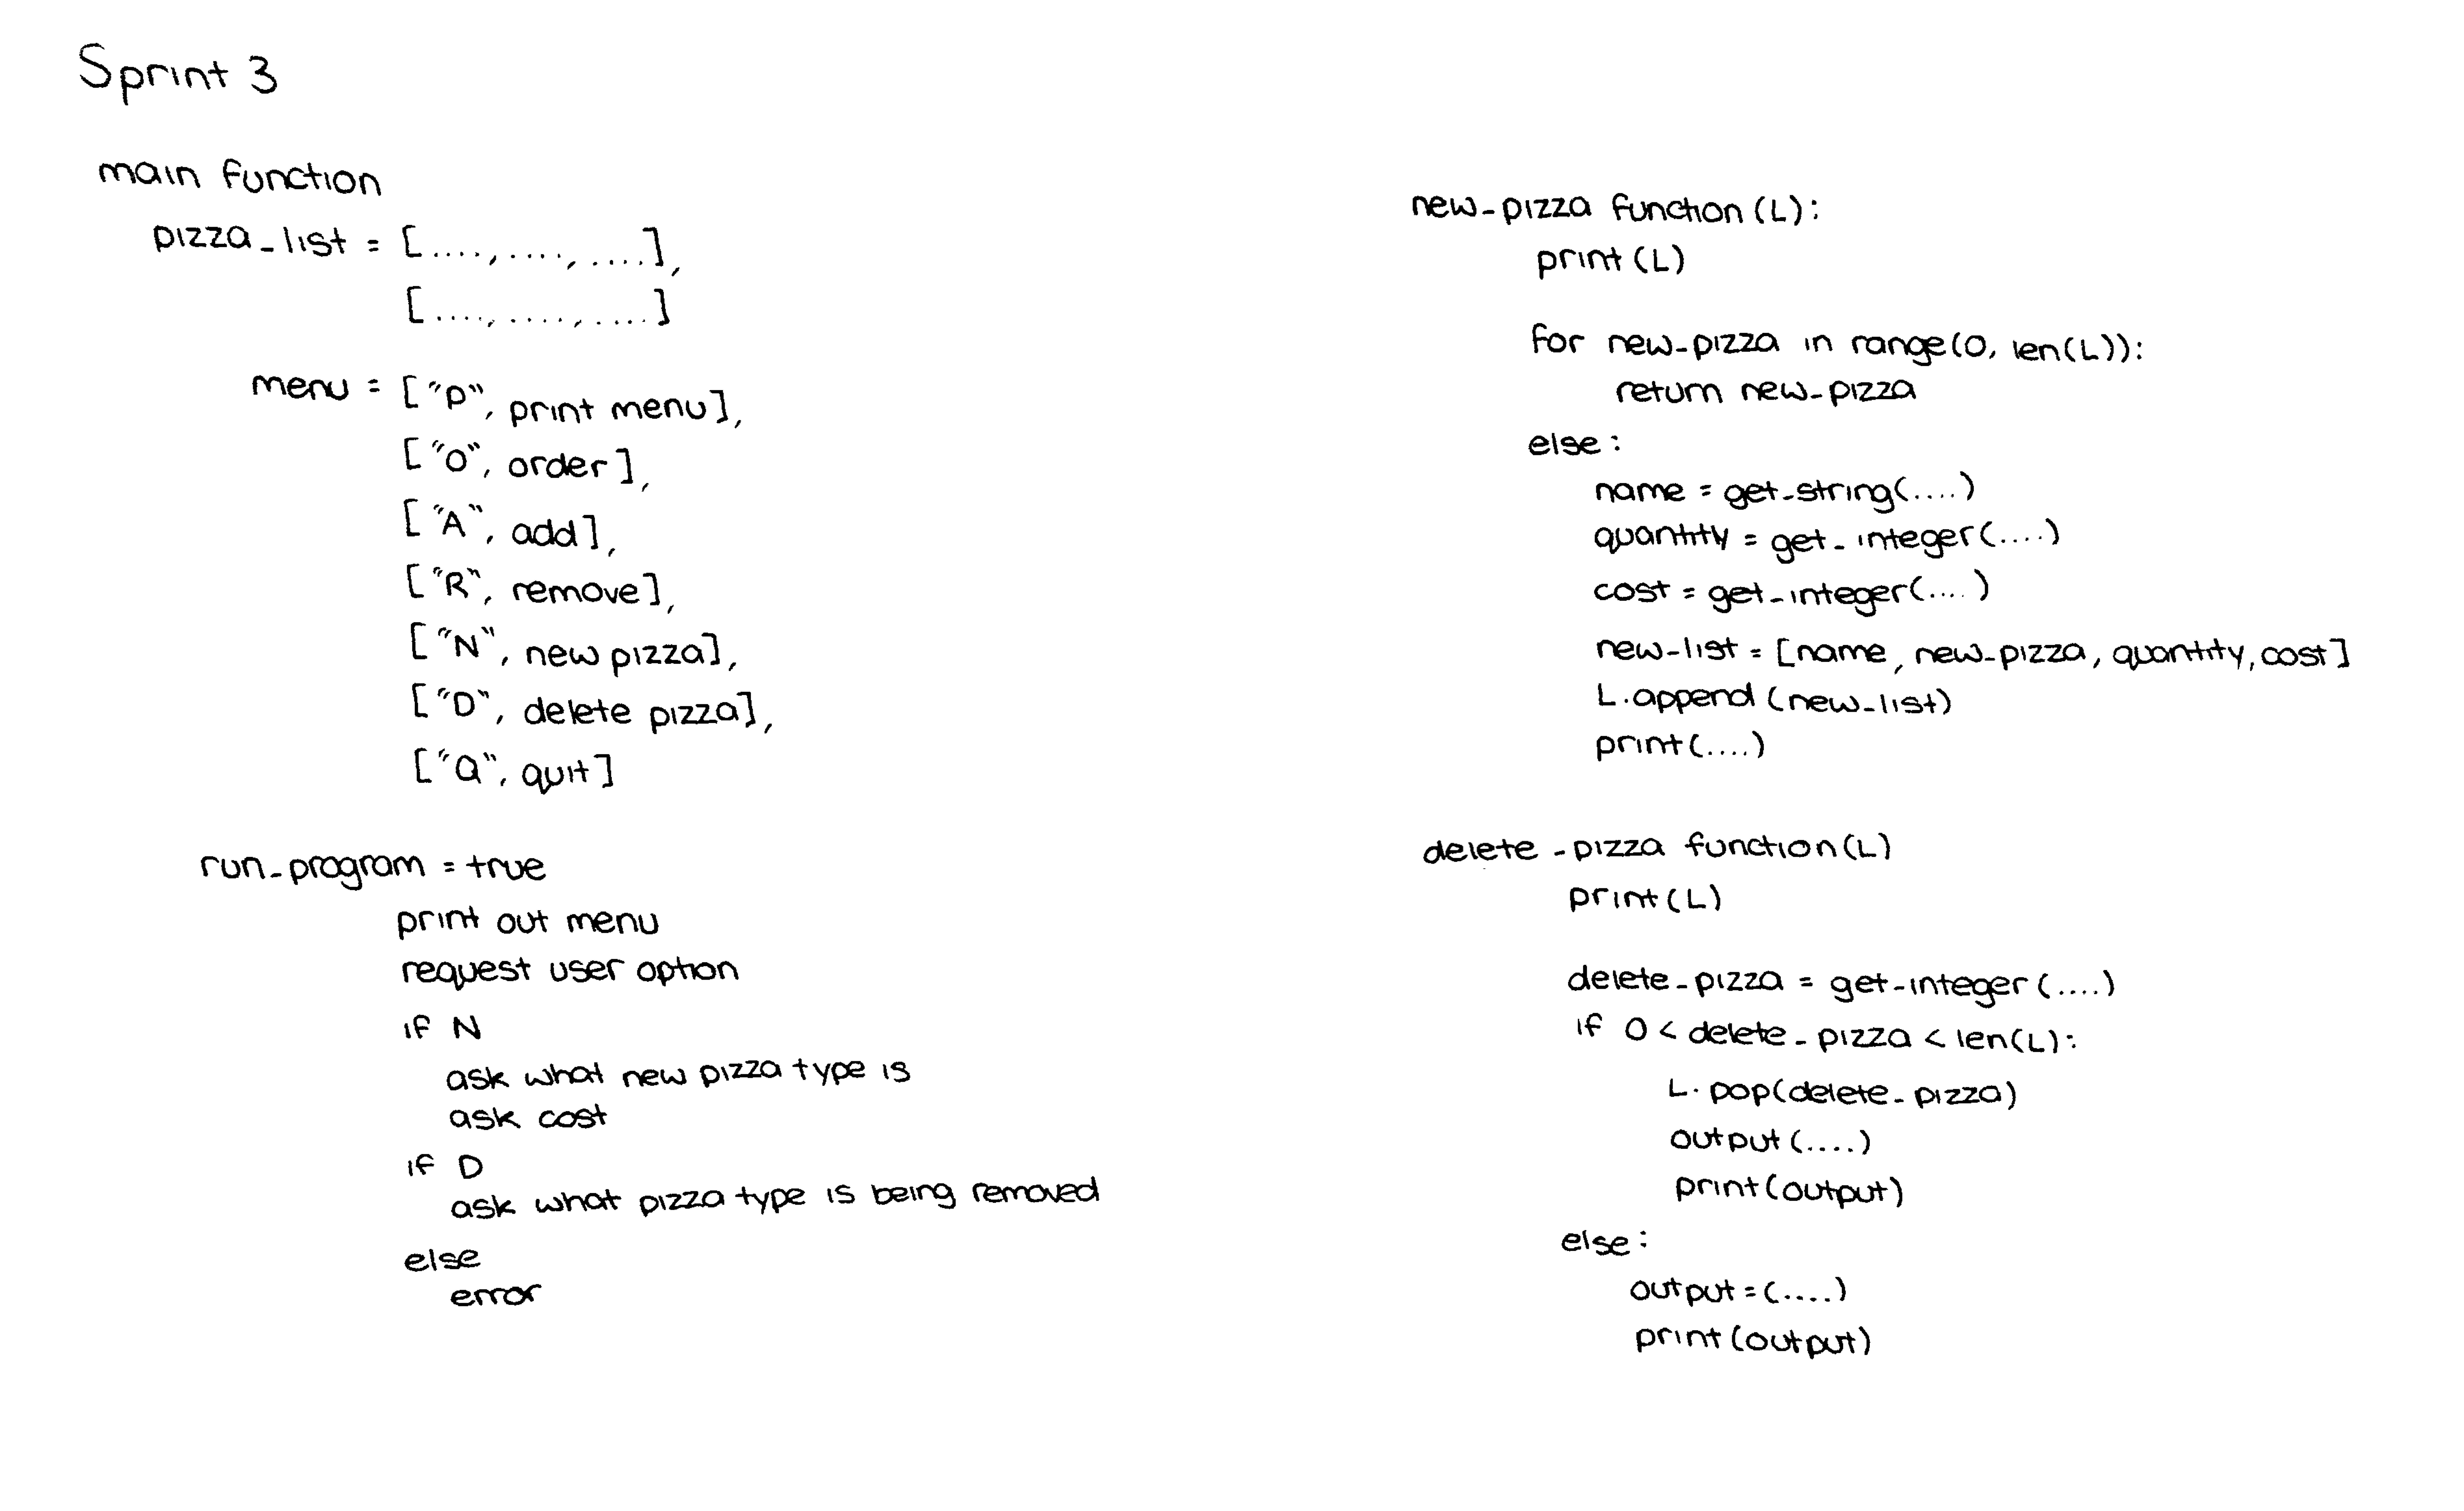 Sprint 3
main function
pizza_list = [...., ...., ....],
[...., ...., ....]
menu = ["P", print menu],
["O", order],
["A", add],
["R", remove],
["N", new pizza],
["D", delete pizza],
["Q", quit]
run_program = true
print out menu
request user option
if N
ask what new pizza type is
ask cost
if D
ask what pizza type is being removed
else
error
new_pizza function (L):
print (L)
for new_pizza in range(0, len(L)):
return new_pizza
else:
name = get_string(....)
quantity = get_integer(....)
cost = get_integer(....)
new_list = [name, new_pizza, quantity, cost]
L.append (new_list)
print(....)
delete_pizza function(L)
print(L)
delete_pizza = get_integer (....)
if 0 < delete_pizza < len(L):
L.pop(delete_pizza)
output (....)
print(output)
else:
output = (....)
print (output)